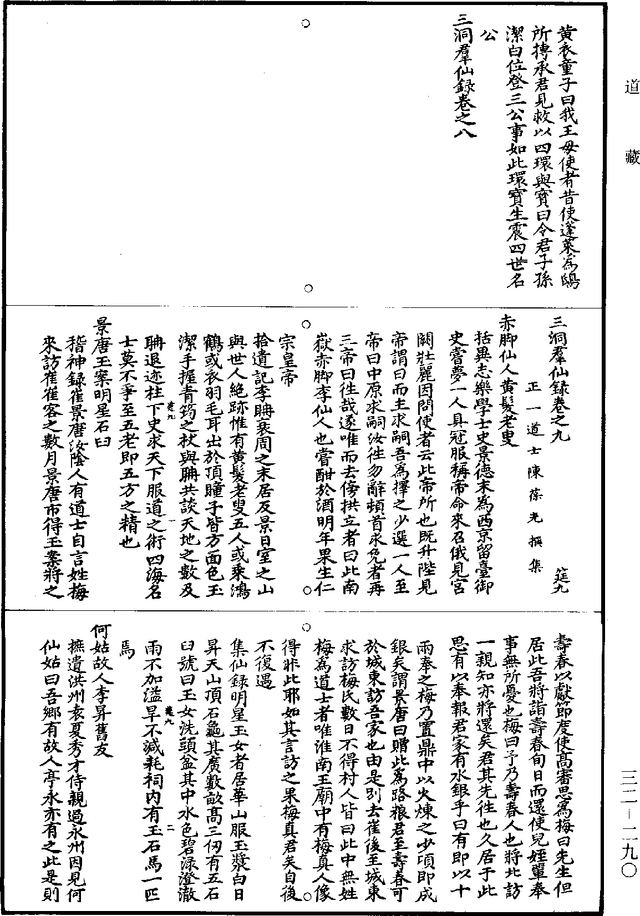 道藏
黃衣童子曰我王母使者昔使蓬萊為鴟
所搏承君見救以四環與寶曰令君子孫
潔白位登三公事如此環寶生震四世名
公
三洞羣仙錄卷之八
三洞羣仙錄卷之九
筵九
正一道士陳葆光撰集
赤脚仙人黃髮老叟
括異志樂學士史景德末為西京留臺御
史嘗夢一人具冠服稱帝命來召俄見宮
闕壯麗因問使者云此帝所也既升陛見
帝謂曰而主求嗣吾為擇之少選一人至
帝曰中原求嗣汝往勿辭頓首求免者再
三帝曰往哉遂唯而去傍拱立者曰此南
嶽赤脚李仙人也嘗酣於酒明年果生仁
宗皇帝
拾遺記李聃衰周之末居及景日室之山
與世人絶跡惟有黃髮老叟五人或乘鴻
鶴或衣羽毛耳出於頂瞳子皆方面色玉
潔手握青筠之杖與聃共談天地之數及
聃退迹柱下史求天下服道之術四海名
士莫不爭至五老即五方之精也
景唐玉案明星石臼
稽神錄崔景唐汝陰人有道士自言姓梅
來訪崔崔客之數月景唐市得玉案將之
筵九
一
壽春以獻節度使高審思為梅曰先生但
居此吾將詣壽春旬日而還使兒姪軰奉
事無所憂也梅曰予乃壽春人也將北訪
一親知亦將還矣君其先往也久居于此
思有以奉報君家有水銀乎曰有即以十
兩奉之梅乃置鼎中以火煉之少頃即成
銀矣謂景唐曰贈此為路粮君至壽春可
於城東訪吾家也由是别去崔後至城東
求訪梅氏數日不得村人皆曰此中無姓
梅為道士者唯淮南王廟中有梅真人像
得非此耶如其言訪之果梅真君矣自後
不復遇
集仙錄明星玉女者居華山服玉漿白日
昇天山頂石龜其廣數畝高三仞有五石
臼號曰玉女洗頭盆其中水色碧淥澄澈
雨不加溢旱不減耗祠内有玉石馬一匹
馬
筵九
二
何姑故人李昇舊友
摭遺洪州袁夏秀才侍親過永州因見何
仙姑曰吾鄉有故人亭永亦有之此是則
三二—二九〇